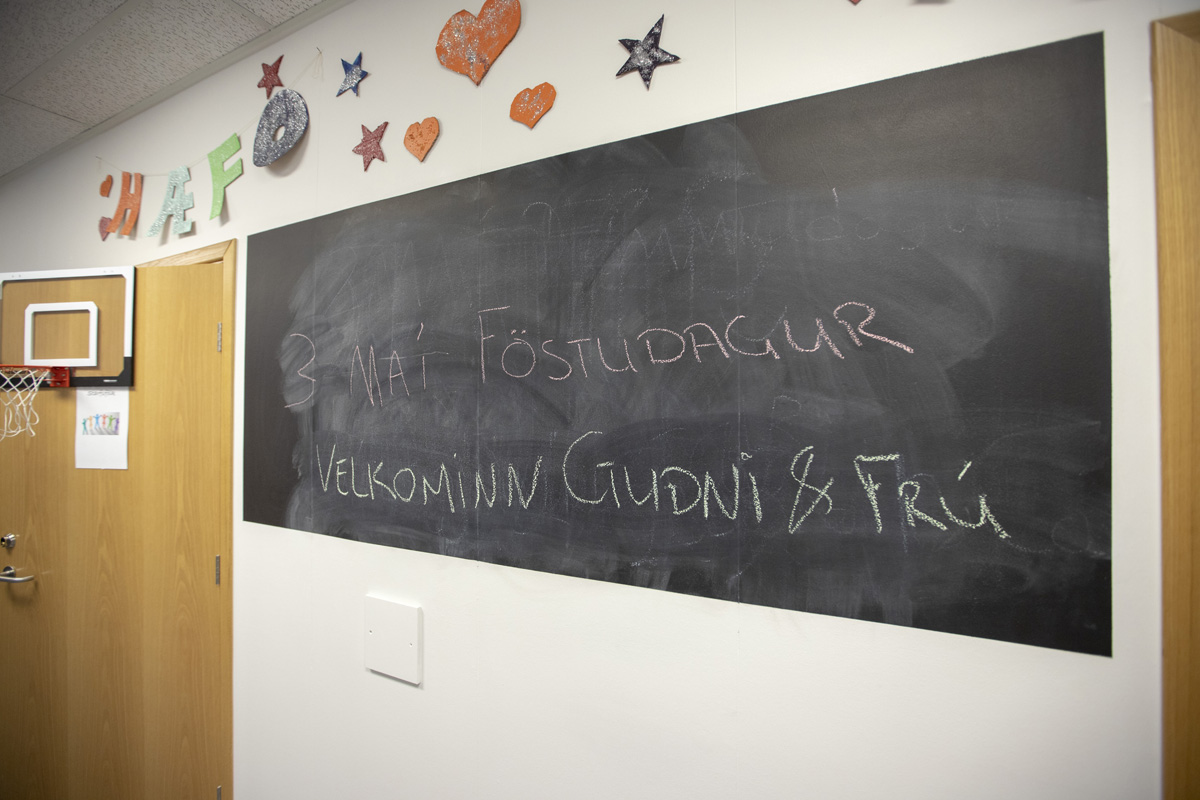 HÆF
3 MAÍ FÖSTUDAGUR
VELKOMINN GUDNI & FRÚ